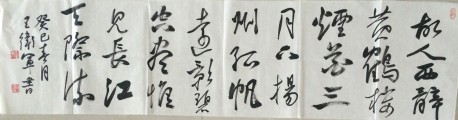 故人西辭
黄鶴樓
煙花三
月下揚
州孤帆
遠影碧
空盡惟
見長江
天際流
癸巳春月
王衛軍書